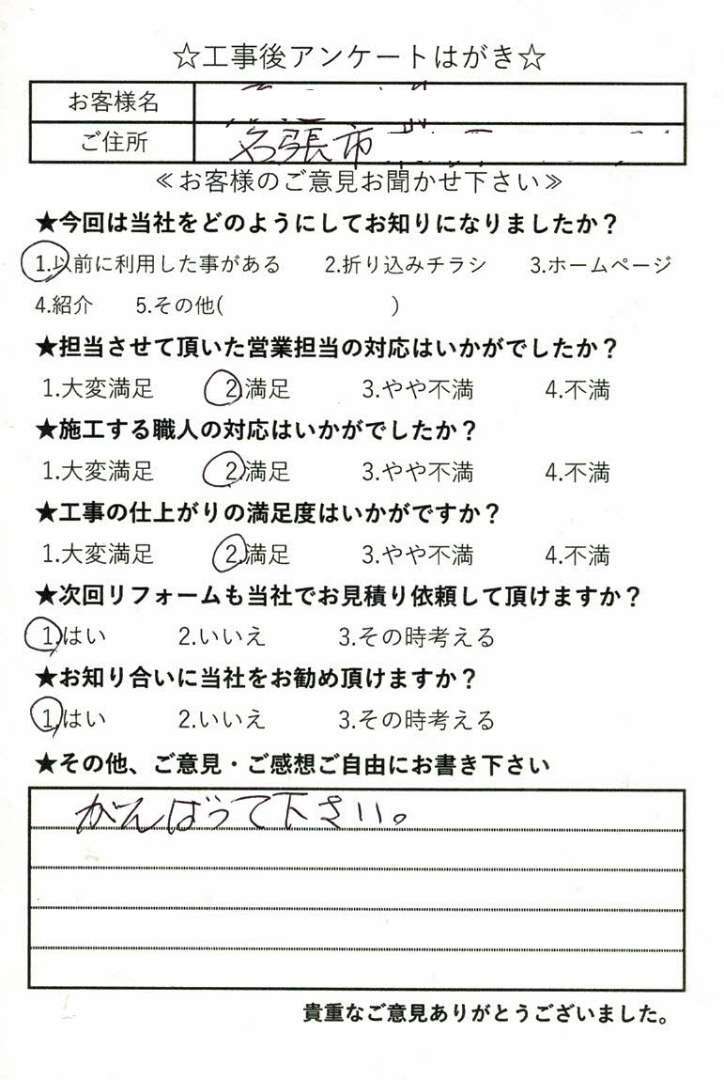 ☆工事後アンケートはがき☆
お客様名
ご住所 名張市
≪お客様のご意見お聞かせ下さい≫
★今回は当社をどのようにしてお知りになりましたか？
1.以前に利用した事がある 2.折り込みチラシ 3.ホームページ
4.紹介 5.その他( )
★担当させて頂いた営業担当の対応はいかがでしたか？
1.大変満足 2.満足 3.やや不満 4.不満
★施工する職人の対応はいかがでしたか？
1.大変満足 2.満足 3.やや不満 4.不満
★工事の仕上がりの満足度はいかがですか？
1.大変満足 2.満足 3.やや不満 4.不満
★次回リフォームも当社でお見積り依頼して頂けますか？
1.はい 2.いいえ 3.その時考える
★お知り合いに当社をお勧め頂けますか？
1.はい 2.いいえ 3.その時考える
★その他、ご意見・ご感想ご自由にお書き下さい
がんばって下さい。
貴重なご意見ありがとうございました。